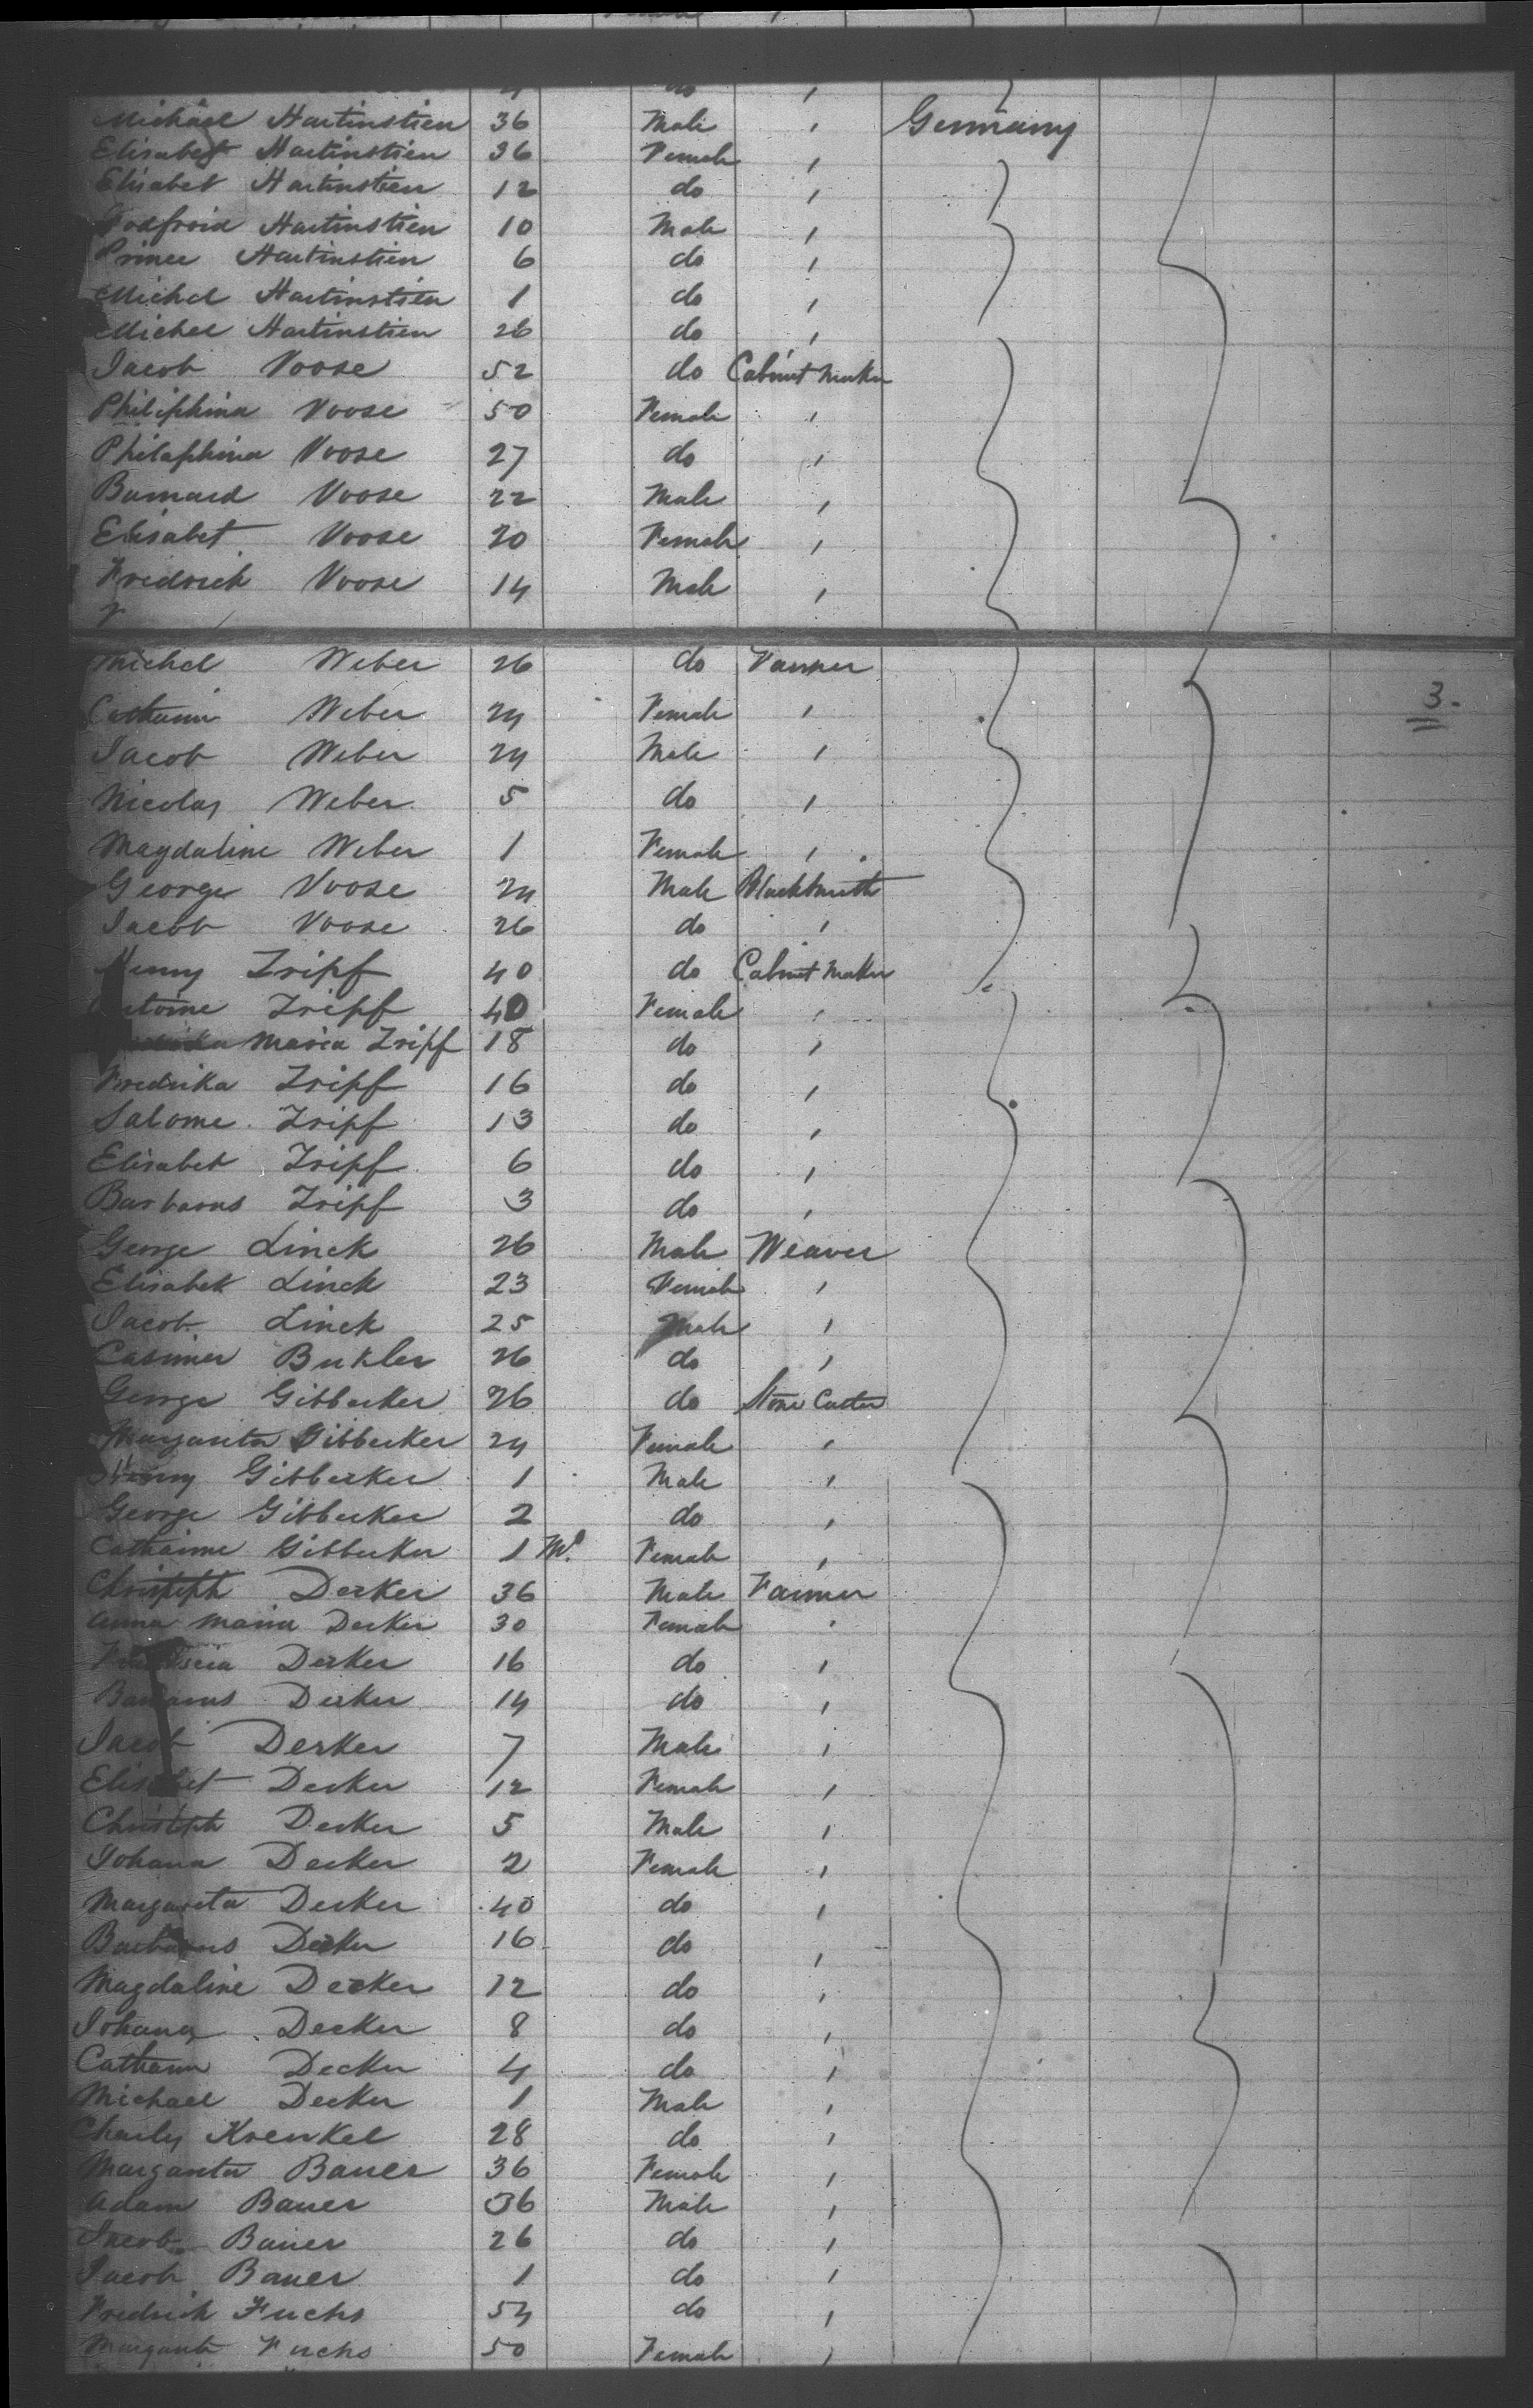 Michael Hartinstien 36 Male ' Germany
Elisabet Hartinstien 36 Female '
Elisabet Hartinstien 12 do '
Godfroid Hartinstien 10 Male '
Prince Hartinstien 6 do '
Michel Hartinstien 1 do '
Michel Hartinstien 26 do '
Jacob Voose 52 do Cabinet Maker
Philiphina Voose 50 Female '
Philaphina Voose 27 do '
Barnard Voose 22 Male '
Elisabet Voose 20 Female '
Fredrich Voose 14 Male '
Michel Weber 26 do Farmer
Catharin Weber 24 Female ' 3.
Jacob Weber 24 Male '
Nicolas Weber 5 do '
Magdaline Weber 1 Female '
George Voose 24 Male Blacksmith
Jacob Voose 26 do '
Henry Zripf 40 do Cabinet Maker
Zripf 40 Female '
Maria Zripf 18 do '
Fredrika Zripf 16 do '
Salome Zripf 13 do '
Elisabet Zripf 6 do '
Barbarus Zripf 3 do '
George Linck 26 Male Weaver
Elisabet Linck 23 Female '
Jacob Linck 25 Male '
Casimer Bukler 26 do '
George Gibbecker 26 do Stone Cutter
Margarita Gibbecker 24 Female '
Henry Gibbecker 1 Male '
George Gibbecker 2 do '
Catharine Gibbecker 1 Mo. Female '
Christoph Decker 36 Male Farmer
Anna Maria Decker 30 Female '
Decker 16 do '
Barbarus Decker 14 do '
Jacob Decker 7 Male '
Elisabet Decker 12 Female '
Christoph Decker 5 Male '
Johana Decker 2 Female '
Margareta Decker 40 do '
Barbarus Decker 16 do '
Magdaline Decker 12 do '
Johana Decker 8 do '
Catharin Decker 4 do '
Michael Decker 1 Male '
Charly Krenkel 28 do '
Margareta Bauer 36 Female '
Adam Bauer 36 Male '
Jacob Bauer 26 do '
Jacob Bauer 1 do '
Fredrick Fuchs 54 do '
Margaret Fuchs 50 Female '